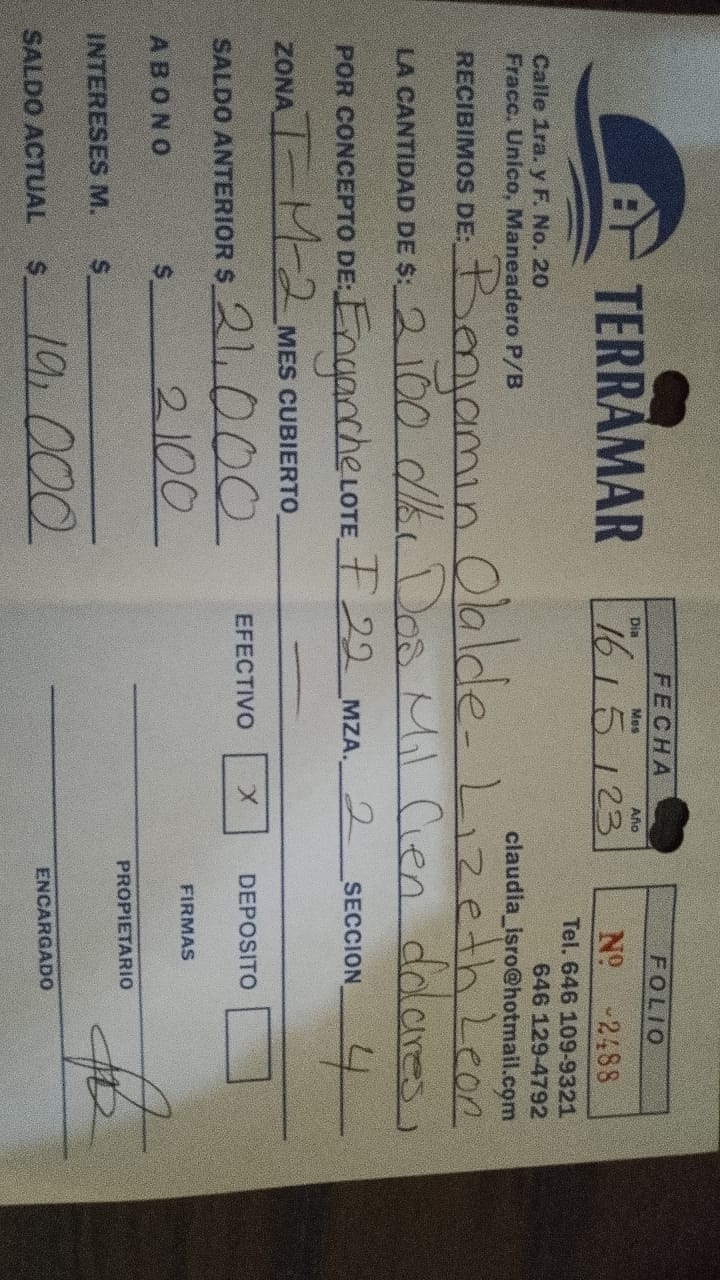 TERRAMAR
Calle 1ra. y F. No. 20
Fracc. Unico, Maneadero P/B
FECHA
Dia Mes Año
16 / 5 / 23
FOLIO
Nº 2488
Tel. 646 109-9321
646 129-4792
claudia_isro@hotmail.com
RECIBIMOS DE: Benjamin Olalde - Lizeth Leon
LA CANTIDAD DE $: 2100 dlls, Dos Mil Cien dolares,
POR CONCEPTO DE: Enganche LOTE F 22 MZA. 2 SECCION 4
ZONA T-M-2 MES CUBIERTO —
SALDO ANTERIOR $ 21,000
EFECTIVO X DEPOSITO
ABONO $ 2100
FIRMAS
INTERESES M. $
PROPIETARIO
SALDO ACTUAL $ 19,000
ENCARGADO